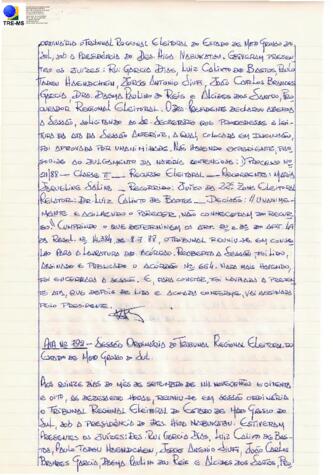 TRE-MS
ORDINÁRIA O TRIBUNAL REGIONAL ELEITORAL DO ESTADO DE MATO GROSSO DO
SUL, SOB A PRESIDÊNCIA DO DES. HIGA NABUKATSU. ESTIVERAM PRESEN-
TES OS JUÍZES: RUI GARCIA DIAS, LUIZ CALIXTO DE BASTOS, PAULO
TADEU HAENDCHEN, JORGE ANTONIO SIUFI, JOÃO CARLOS BRANDES
GARCIA E DRS. PAULINO DE REIS E ALCIDES DOS SANTOS, PRO-
CURADOR REGIONAL ELEITORAL. O DES. PRESIDENTE DECLAROU ABERTA
A SESSÃO, SOLICITANDO AO SR. SECRETÁRIO QUE PROCEDESSE À LEI-
TURA DA ATA DA SESSÃO ANTERIOR, A QUAL, COLOCADA EM DISCUSSÃO,
FOI APROVADA POR UNANIMIDADE. NÃO HAVENDO EXPEDIENTE, PAS-
SOU-SE AO JULGAMENTO DA MATÉRIA SEGUINTE: 1) PROCESSO Nº
/88 - CLASSE - RECURSO ELEITORAL - RECORRENTE: MARIA
JAQUELINE - RECORRIDO: JUÍZO DA 22ª ZONA ELEITORAL
RELATOR: DR. LUIZ CALIXTO DE BASTOS - DECISÃO: "UNANIME-
MENTE E ACOLHENDO O PARECER, NÃO CONHECERAM DO RECUR-
SO". CUMPRINDO O QUE DETERMINAM OS ARTS.
DA RESOL. Nº O TRIBUNAL REUNIU-SE EM CONSE-
LHO PARA A LAVRATURA DO ACÓRDÃO. REABERTA A SESSÃO FOI LIDO,
ASSINADO E PUBLICADO O ACÓRDÃO Nº 664. NADA MAIS HAVENDO,
FOI ENCERRADA A SESSÃO. E, PARA CONSTAR, FOI LAVRADA A PRESEN-
TE ATA, QUE DEPOIS DE LIDA E ACHADA CONFORME, VAI ASSINADA
PELO PRESIDENTE.
ATA Nº - SESSÃO ORDINÁRIA DO TRIBUNAL REGIONAL ELEITORAL DO
ESTADO DE MATO GROSSO DO SUL.
AOS QUINZE DIAS DO MÊS DE SETEMBRO DE MIL NOVECENTOS E OITENTA
E OITO, ÀS DEZESSETE HORAS, REUNIU-SE EM SESSÃO ORDINÁRIA
O TRIBUNAL REGIONAL ELEITORAL DO ESTADO DE MATO GROSSO DO
SUL, SOB A PRESIDÊNCIA DO DES. HIGA NABUKATSU. ESTIVERAM
PRESENTES OS JUÍZES: DES. RUI GARCIA DIAS, LUIZ CALIXTO DE BAS-
TOS, PAULO TADEU HAENDCHEN, JORGE ANTONIO SIUFI, JOÃO CARLOS
BRANDES GARCIA, PAULINO DE REIS E ALCIDES DOS SANTOS, PRO-